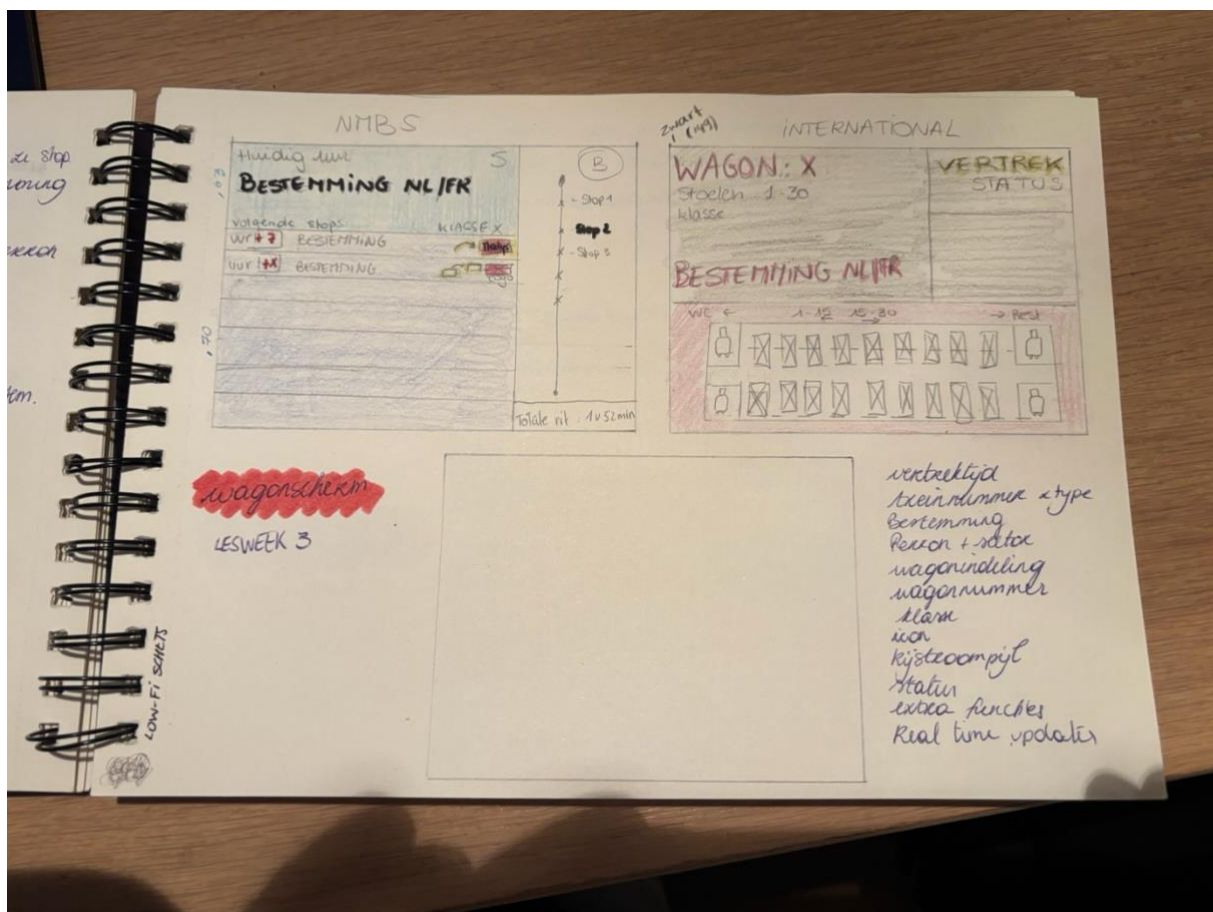 ze stop
NMBS
Huidig uur S
BESTEMMING NL/FR
volgende stops KLASSE X
uur +7 BESTEMMING
uur +X BESTEMMING
,03
,70
B
- Stop 1
Stop 2
- Stop 3
Totale rit : 1u52min
zwart
INTERNATIONAL
WAGON: X
Stoelen 1-30
klasse
BESTEMMING NL/FR
VERTREK
STATUS
WC ← 1-12 15-30 → Rest
wagonscherm
LESWEEK 3
LOW-Fi SCHETS
vertrektijd
treinnummer + type
Bestemming
Perron + sector
wagonindeling
wagonnummer
klasse
icon
Rijstroompijl
status
extra functies
Real time updates